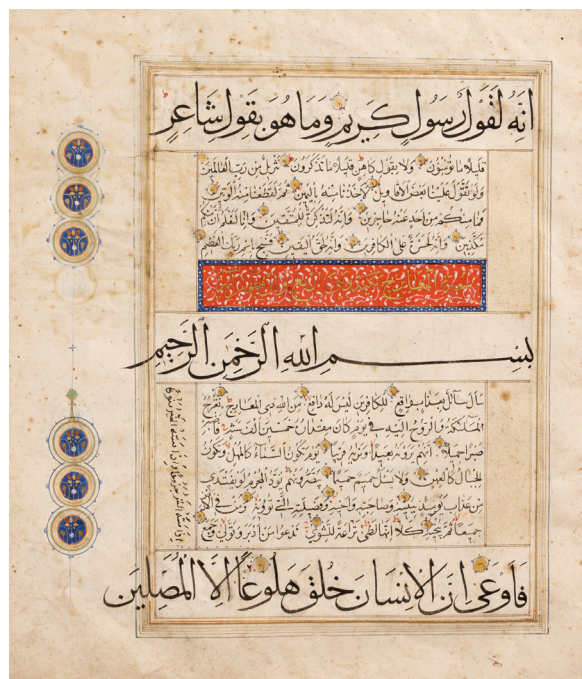 اِنَّهُ لَقَوْلُ رَسُولٍ كَرِيمٍ وَمَا هُوَ بِقَوْلِ شَاعِرٍ
قَلِيلًا مَا تُؤْمِنُونَ وَلَا بِقَوْلِ كَاهِنٍ قَلِيلًا مَا تَذَكَّرُونَ تَنْزِيلٌ مِنْ رَبِّ الْعَالَمِينَ
وَلَوْ تَقَوَّلَ عَلَيْنَا بَعْضَ الْاَقَاوِيلِ لَاَخَذْنَا مِنْهُ بِالْيَمِينِ ثُمَّ لَقَطَعْنَا مِنْهُ الْوَتِينَ
فَمَا مِنْكُمْ مِنْ اَحَدٍ عَنْهُ حَاجِزِينَ وَاِنَّهُ لَتَذْكِرَةٌ لِلْمُتَّقِينَ وَاِنَّا لَنَعْلَمُ اَنَّ مِنْكُمْ
مُكَذِّبِينَ وَاِنَّهُ لَحَسْرَةٌ عَلَى الْكَافِرِينَ وَاِنَّهُ لَحَقُّ الْيَقِينِ فَسَبِّحْ بِاسْمِ رَبِّكَ الْعَظِيمِ
سورة المعارج
بِسْمِ اللهِ الرَّحْمٰنِ الرَّحِيمِ
سَاَلَ سَائِلٌ بِعَذَابٍ وَاقِعٍ لِلْكَافِرِينَ لَيْسَ لَهُ دَافِعٌ مِنَ اللهِ ذِي الْمَعَارِجِ تَعْرُجُ
الْمَلٰئِكَةُ وَالرُّوحُ اِلَيْهِ فِي يَوْمٍ كَانَ مِقْدَارُهُ خَمْسِينَ اَلْفَ سَنَةٍ فَاصْبِرْ
صَبْرًا جَمِيلًا اِنَّهُمْ يَرَوْنَهُ بَعِيدًا وَنَرَاهُ قَرِيبًا يَوْمَ تَكُونُ السَّمَاءُ كَالْمُهْلِ وَتَكُونُ
الْجِبَالُ كَالْعِهْنِ وَلَا يَسْاَلُ حَمِيمٌ حَمِيمًا يُبَصَّرُونَهُمْ يَوَدُّ الْمُجْرِمُ لَوْ يَفْتَدِي
مِنْ عَذَابِ يَوْمِئِذٍ بِبَنِيهِ وَصَاحِبَتِهِ وَاَخِيهِ وَفَصِيلَتِهِ الَّتِي تُؤْوِيهِ وَمَنْ فِي الْاَرْضِ
جَمِيعًا ثُمَّ يُنْجِيهِ كَلَّا اِنَّهَا لَظٰى نَزَّاعَةً لِلشَّوٰى تَدْعُوا مَنْ اَدْبَرَ وَتَوَلّٰى وَجَمَعَ
فَاَوْعٰى اِنَّ الْاِنْسَانَ خُلِقَ هَلُوعًا اِلَّا الْمُصَلِّينَ
اذا مسه الشر جزوعا واذا مسه الخير منوعا